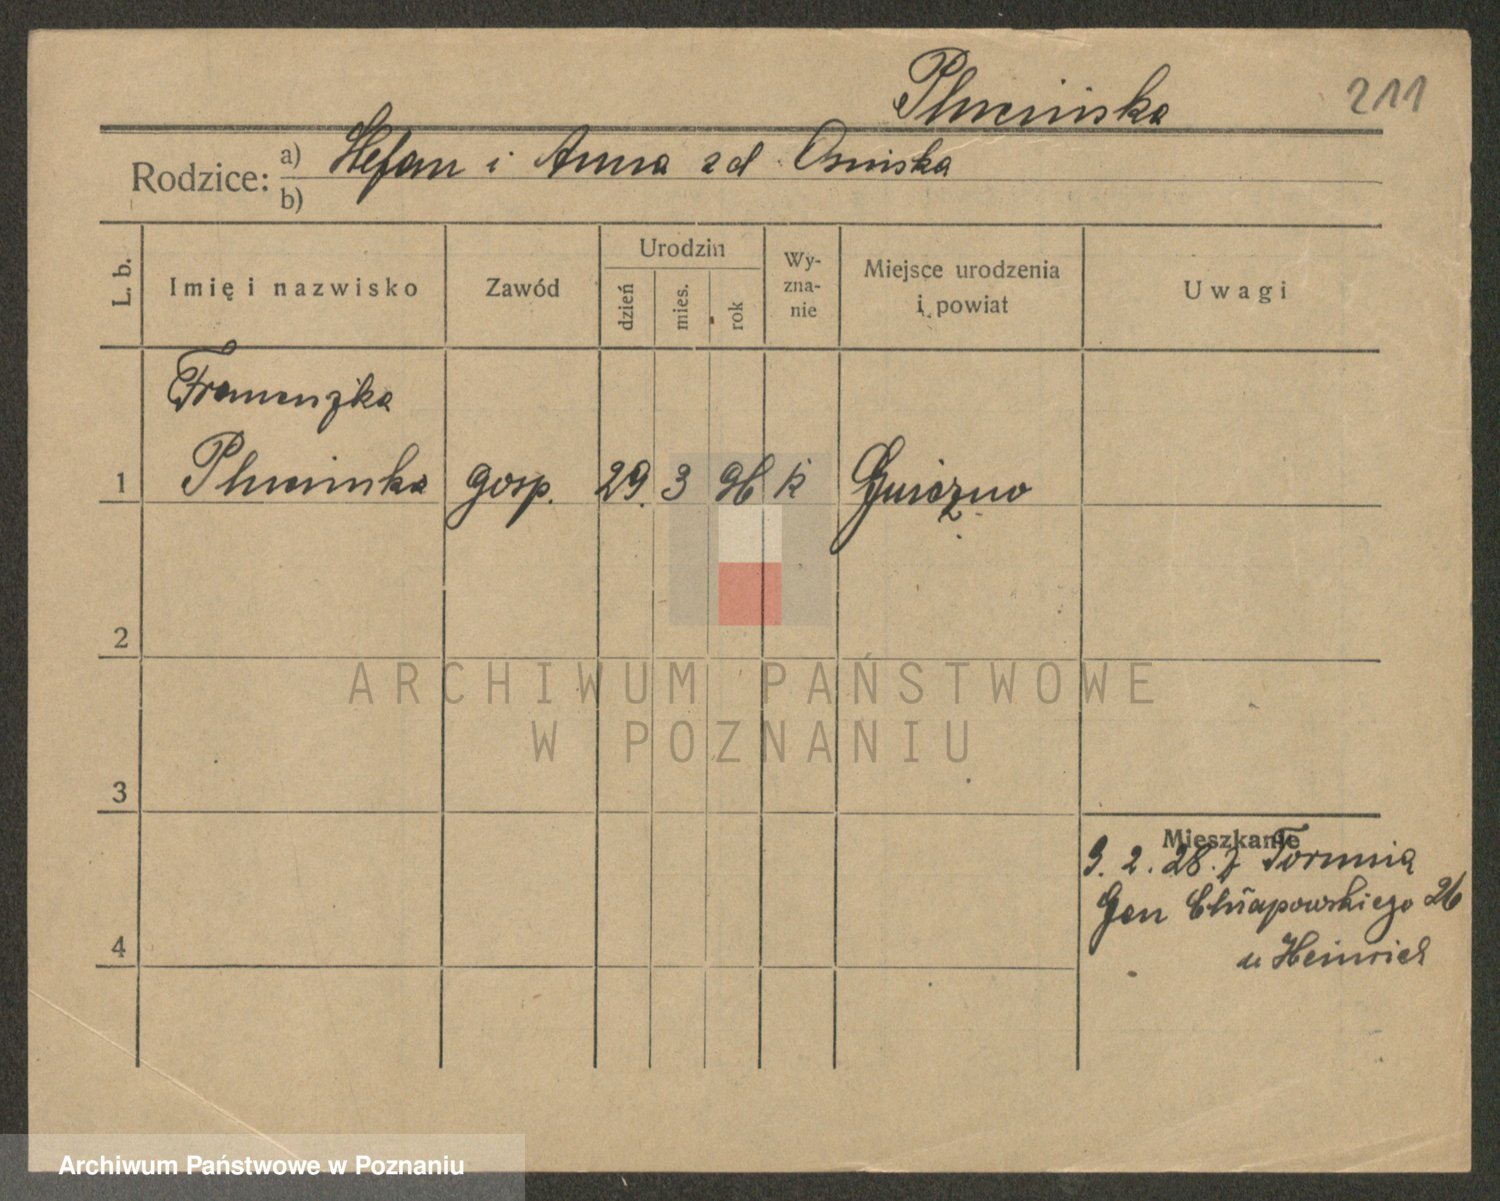 Plucińska
211
Rodzice: a) Stefan i Anna zd Osińska
b)
L. b.
Imię i nazwisko
Zawód
Urodzin
dzień
mies.
rok
Wy-
zna-
nie
Miejsce urodzenia
i powiat
Uwagi
Franciszka
1 Plucińska gosp. 29. 3 96 k Gniezno
2
3
4
Mieszkanie
9. 2. 28. z Torunia
Gen Chłapowskiego 26
u Heinrich
ARCHIWUM PAŃSTWOWE
W POZNANIU
Archiwum Państwowe w Poznaniu